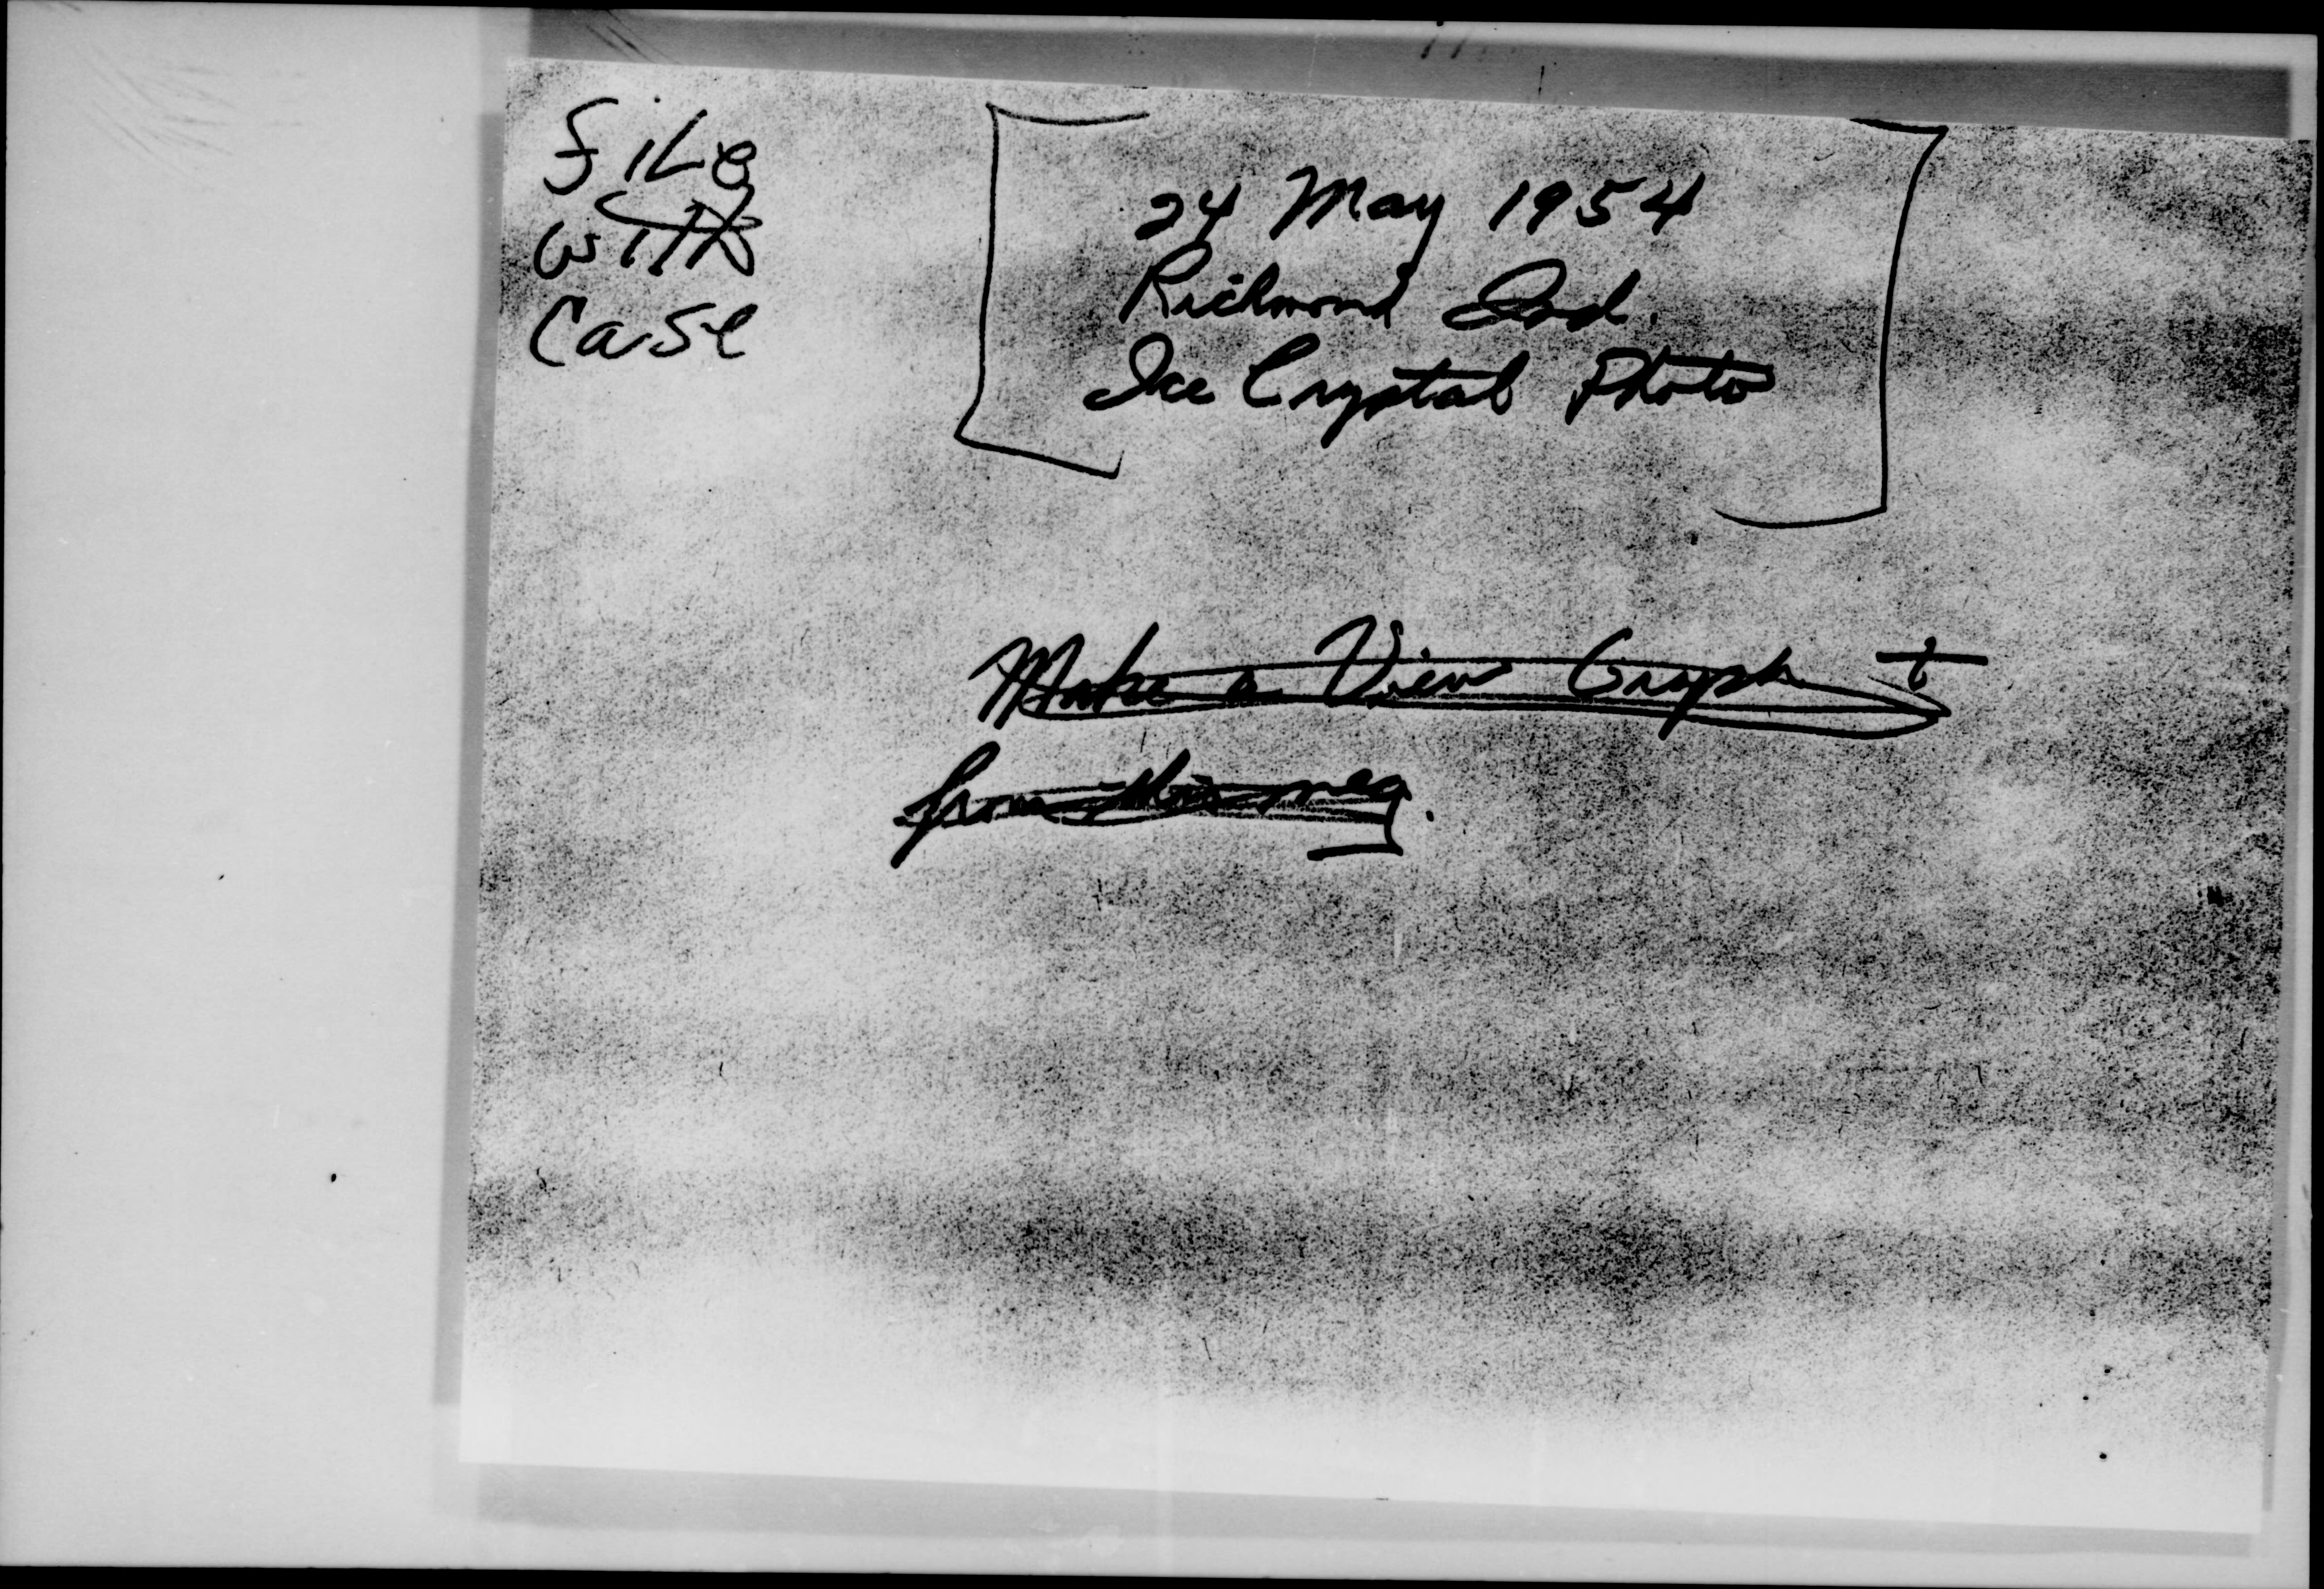 File
with
Case
24 May 1954
Richmond Ind.
Ice Crystal Photo
Make a View Graph
from this neg.